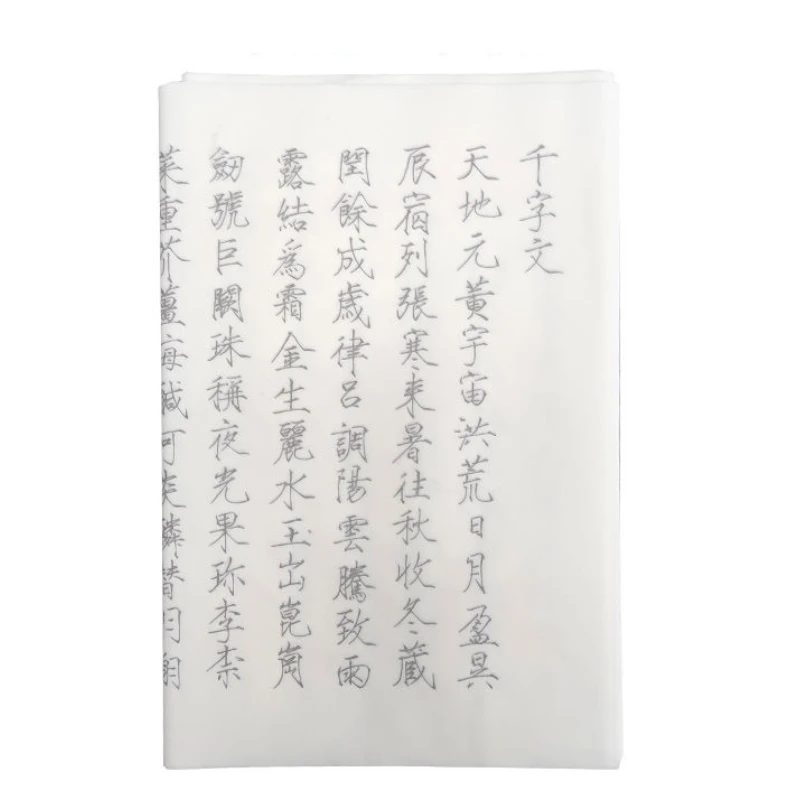 千字文
天地元黃宇宙洪荒日月盈昃
辰宿列張寒来暑往秋收冬蔵
閏餘成歲律呂調陽雲騰致雨
露結爲霜金生麗水玉出崑崗
劒號巨闕珠稱夜光果珎李柰
菜重芥薑海